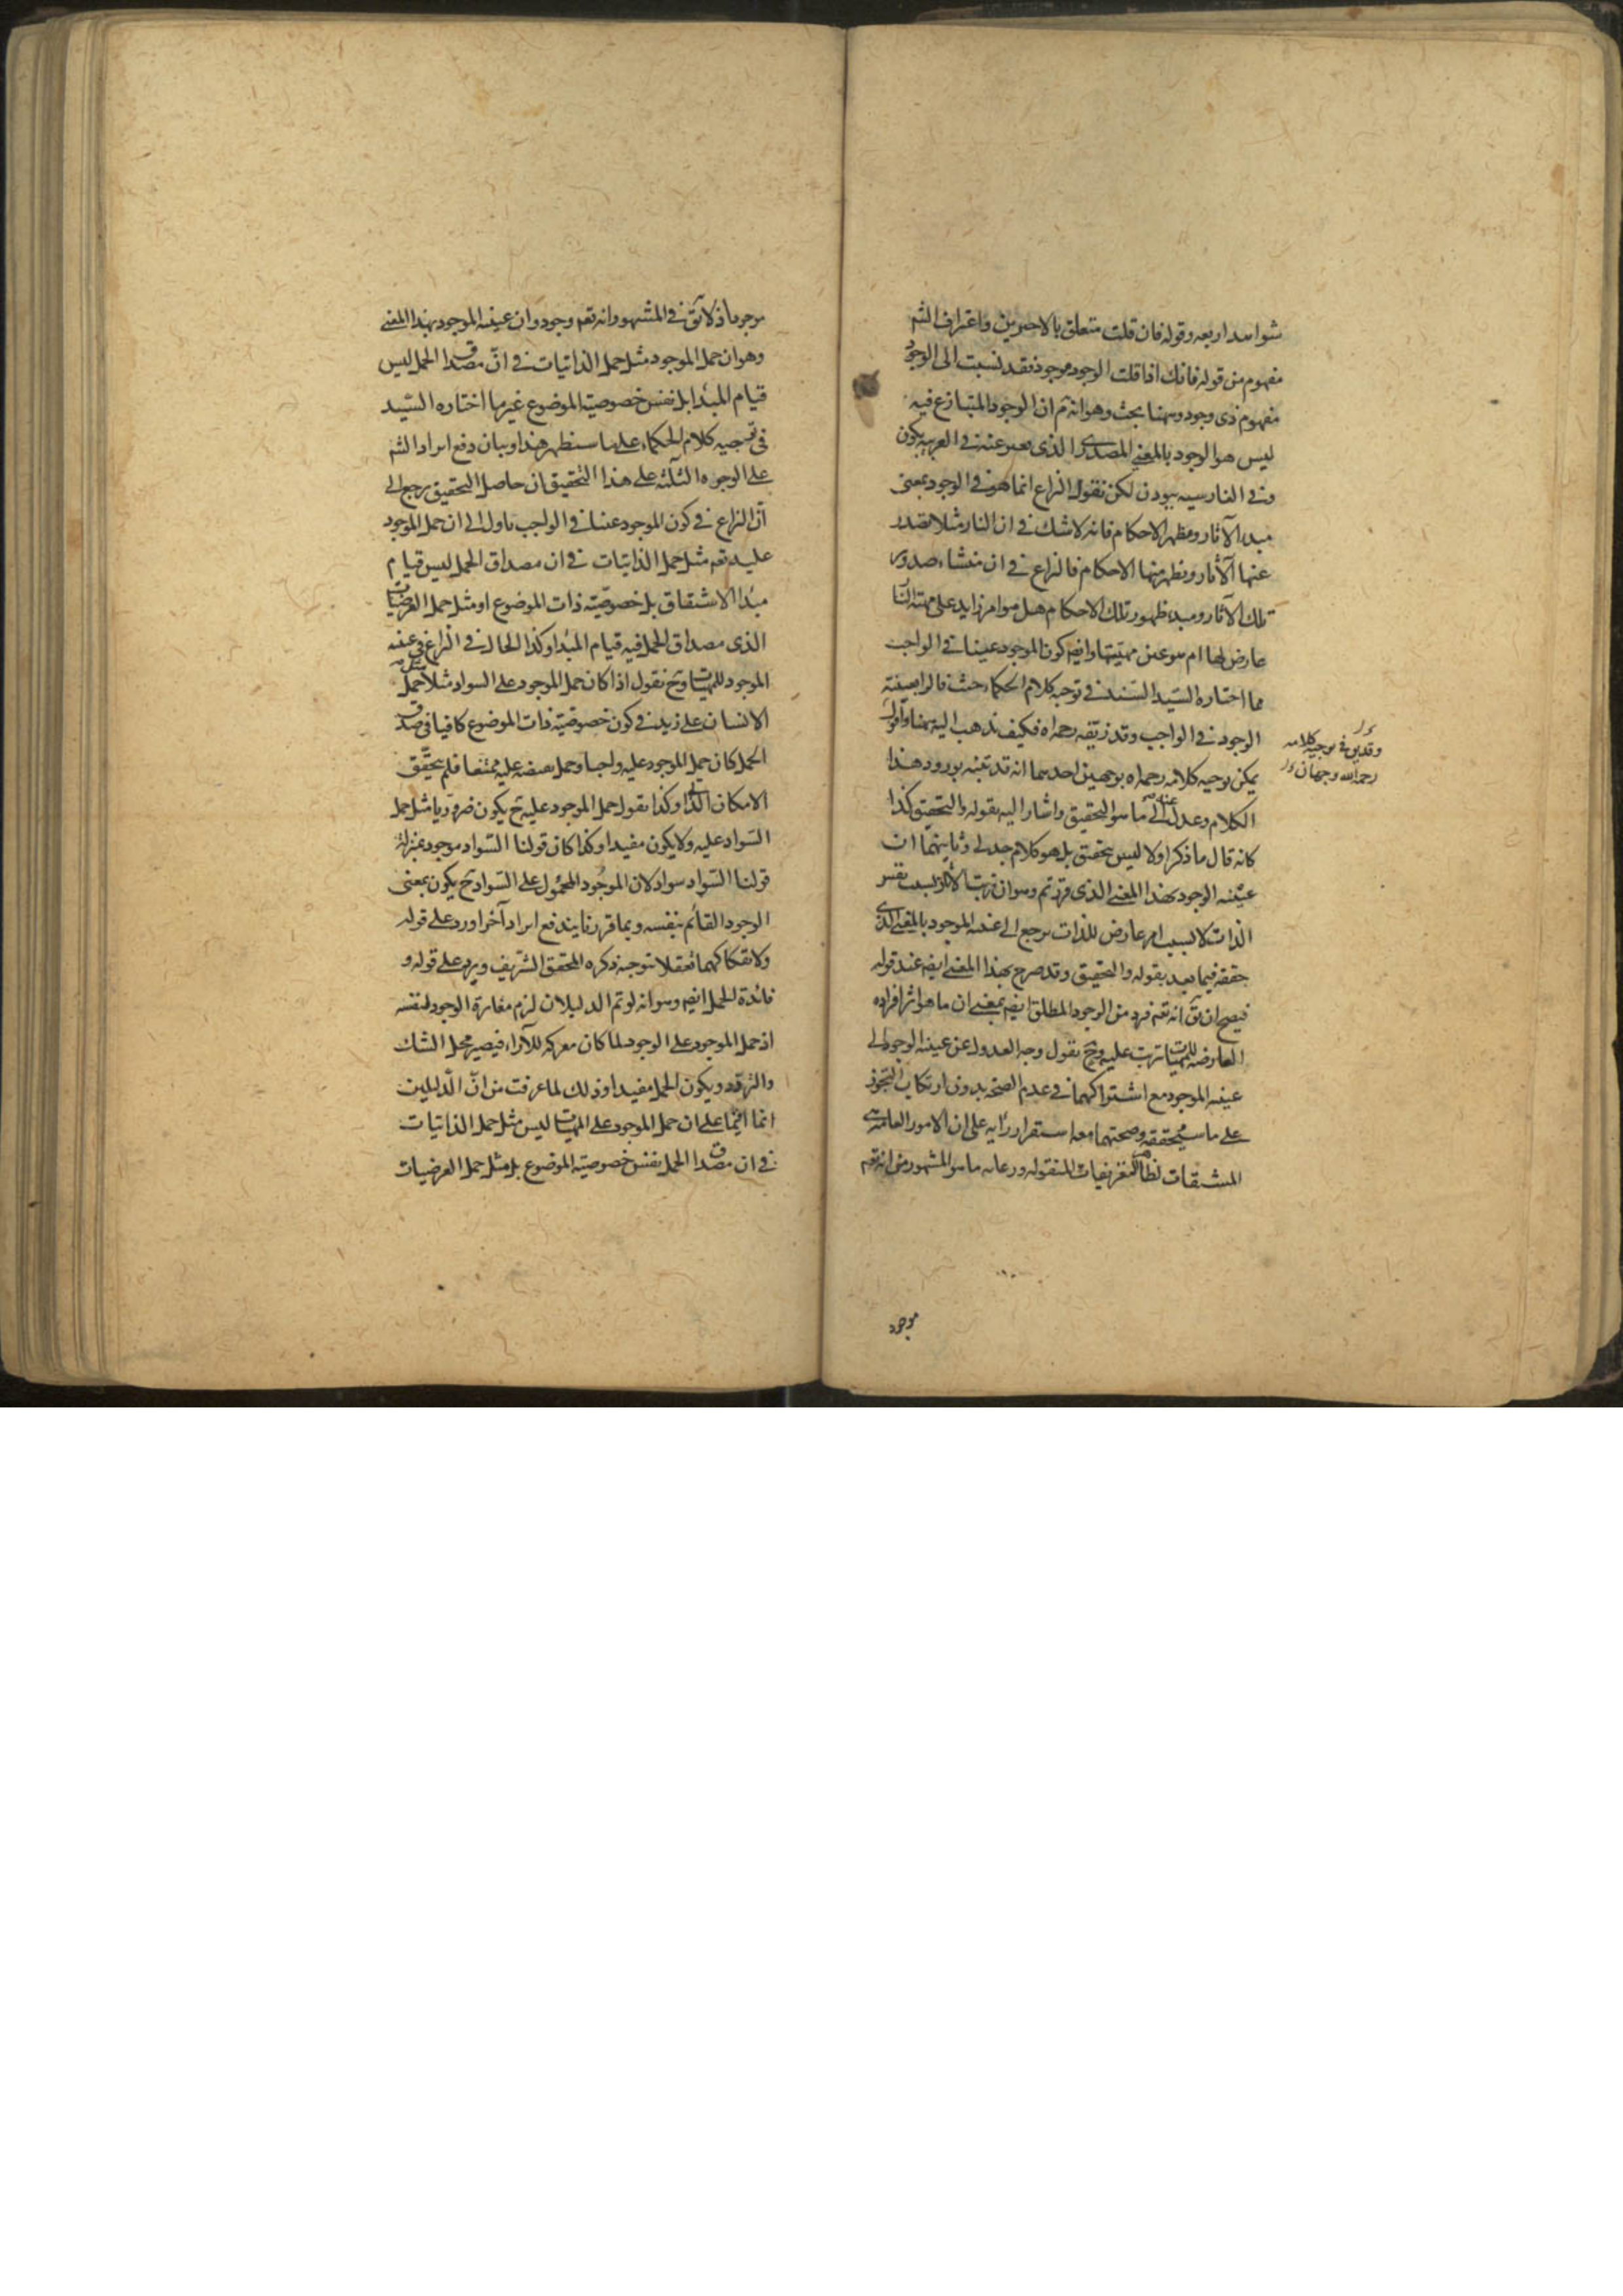 شواهد اربعه وقوله فان قلت متعلق بالاخيرين واعتراف الشم
مفهوم من قوله فانك اذا قلت الوجود موجود فقد نسبت الى الوجود
مفهوم ذى وجود وههنا بحث وهو انه تم ان الوجود المتنازع فيه
ليس هو الوجود بالمعنى المصدرى الذى يعبر عنه فى العربيه بكون
وفى الفارسيه ببودن لكن نقول النزاع انما هو فى الوجود بمعنى
مبدا الآثار ومظهر الاحكام فانه لا شك فى ان النار مثلا تصدر
عنها الآثار وتظهر منها الاحكام فالنزاع فى ان منشاء صدور
تلك الآثار ومبدء ظهور تلك الاحكام هل هو امر زايد على مهية النا
عارض لها ام هو عين مهيتها وايضم كون الموجود عينا فى الواجب
مما اختاره السيد السند فى توجيه كلام الحكماء حيث قالوا بعينية
الوجود فى الواجب وقد زيفه رحمه اه فكيف يذهب اليه ههنا واقول
يمكن توجيه كلامه رحمه اه بوجهين احدهما انه قد تنبه بورود هذا
الكلام وعدل عنه الى ما هو التحقيق واشار اليه بقوله والتحقيق كذا
كانه قال ما ذكر اولا ليس بتحقيق بل هو كلام جدلى وثانيهما ان
عينيه الوجود بهذا المعنى الذى قررتم وهو ان ترتب الآثار بسبب نفس
الذات لا بسبب امر عارض للذات يرجع الى عينيه الموجود بالمعنى الذى
حققه فيما بعد بقوله والتحقيق وقد صرح بهذا المعنى ايضم عند قوله
فيصح ان يق انه تعم فرد من الوجود المطلق ايضم بمعنى ان ما هو اثر افراده
العارضه للمهيات يترتب عليه وح نقول وجه العدول عن عينيه الوجود الى
عينيه الموجود مع اشتراكهما فى عدم الصحه بدون ارتكاب التجوز
على ما سيحققه وصحتهما معه استقرار رايه على ان الامور العامه هى
المشتقات نظرا للتعريفات المنقوله ورعايه ما هو المشهور من انه تعم
وقد يق فى توجيه كلامه
رحمه الله وجهان
موجود
موجود اذ لا يق فى المشهور انه تعم وجود وان عينيه الموجود بهذا المعنى
وهو ان حمل الموجود مثل حمل الذاتيات فى ان مصداق الحمل ليس
قيام المبدا بل نفس خصوصية الموضوع غير ما اختاره السيد
فى توجيه كلام الحكماء على ما سنظهر هذا وبيان دفع ايراد الشم
على الوجوه الثلثه على هذا التحقيق ان حاصل التحقيق يرجع الى
ان النزاع فى كون الموجود عينا فى الواجب ياول الى ان حمل الموجود
عليه تعم مثل حمل الذاتيات فى ان مصداق الحمل ليس قيام
مبدا الاشتقاق بل خصوصيته ذات الموضوع او مثل حمل العرضيات
الذى مصداق الحمل فيه قيام المبدا وكذا الحال فى النزاع فى عينيه
الموجود للمهيات وح نقول اذا كان حمل الموجود على السواد مثلا مثل حمل
الانسان على زيد فى كون خصوصيته ذات الموضوع كافيا فى صدق
الحمل كان حمل الموجود عليه واجبا وحمل نقيضه عليه ممتنعا فلم يتحقق
الامكان الذاتى وكذا نقول حمل الموجود عليه ح يكون ضروريا مثل حمل
السواد عليه ولا يكون مفيدا وكذا كان قولنا السواد موجود بمنزله
قولنا السواد سواد لان الموجود المحمول على السواد ح يكون بمعنى
الوجود القائم بنفسه وبما قررنا يندفع ايراد آخر اورد على قوله
ولانفكاكهما تعقلا توجيه ذكره المحقق الشريف ويرد على قوله و
فائدة الحمل ايضم وهو انه لو تم الدليلان لزم مغايرة الوجود لنفسه
اذ حمل الموجود على الوجود لما كان معركه للآراء فيصير محل الشك
والتردد ويكون الحمل مفيدا وذلك لما عرفت من ان الدليلين
انما اقيما على ان حمل الموجود على المهيات ليس مثل حمل الذاتيات
فى ان مصداق الحمل نفس خصوصية الموضوع بل مثل حمل العرضيات